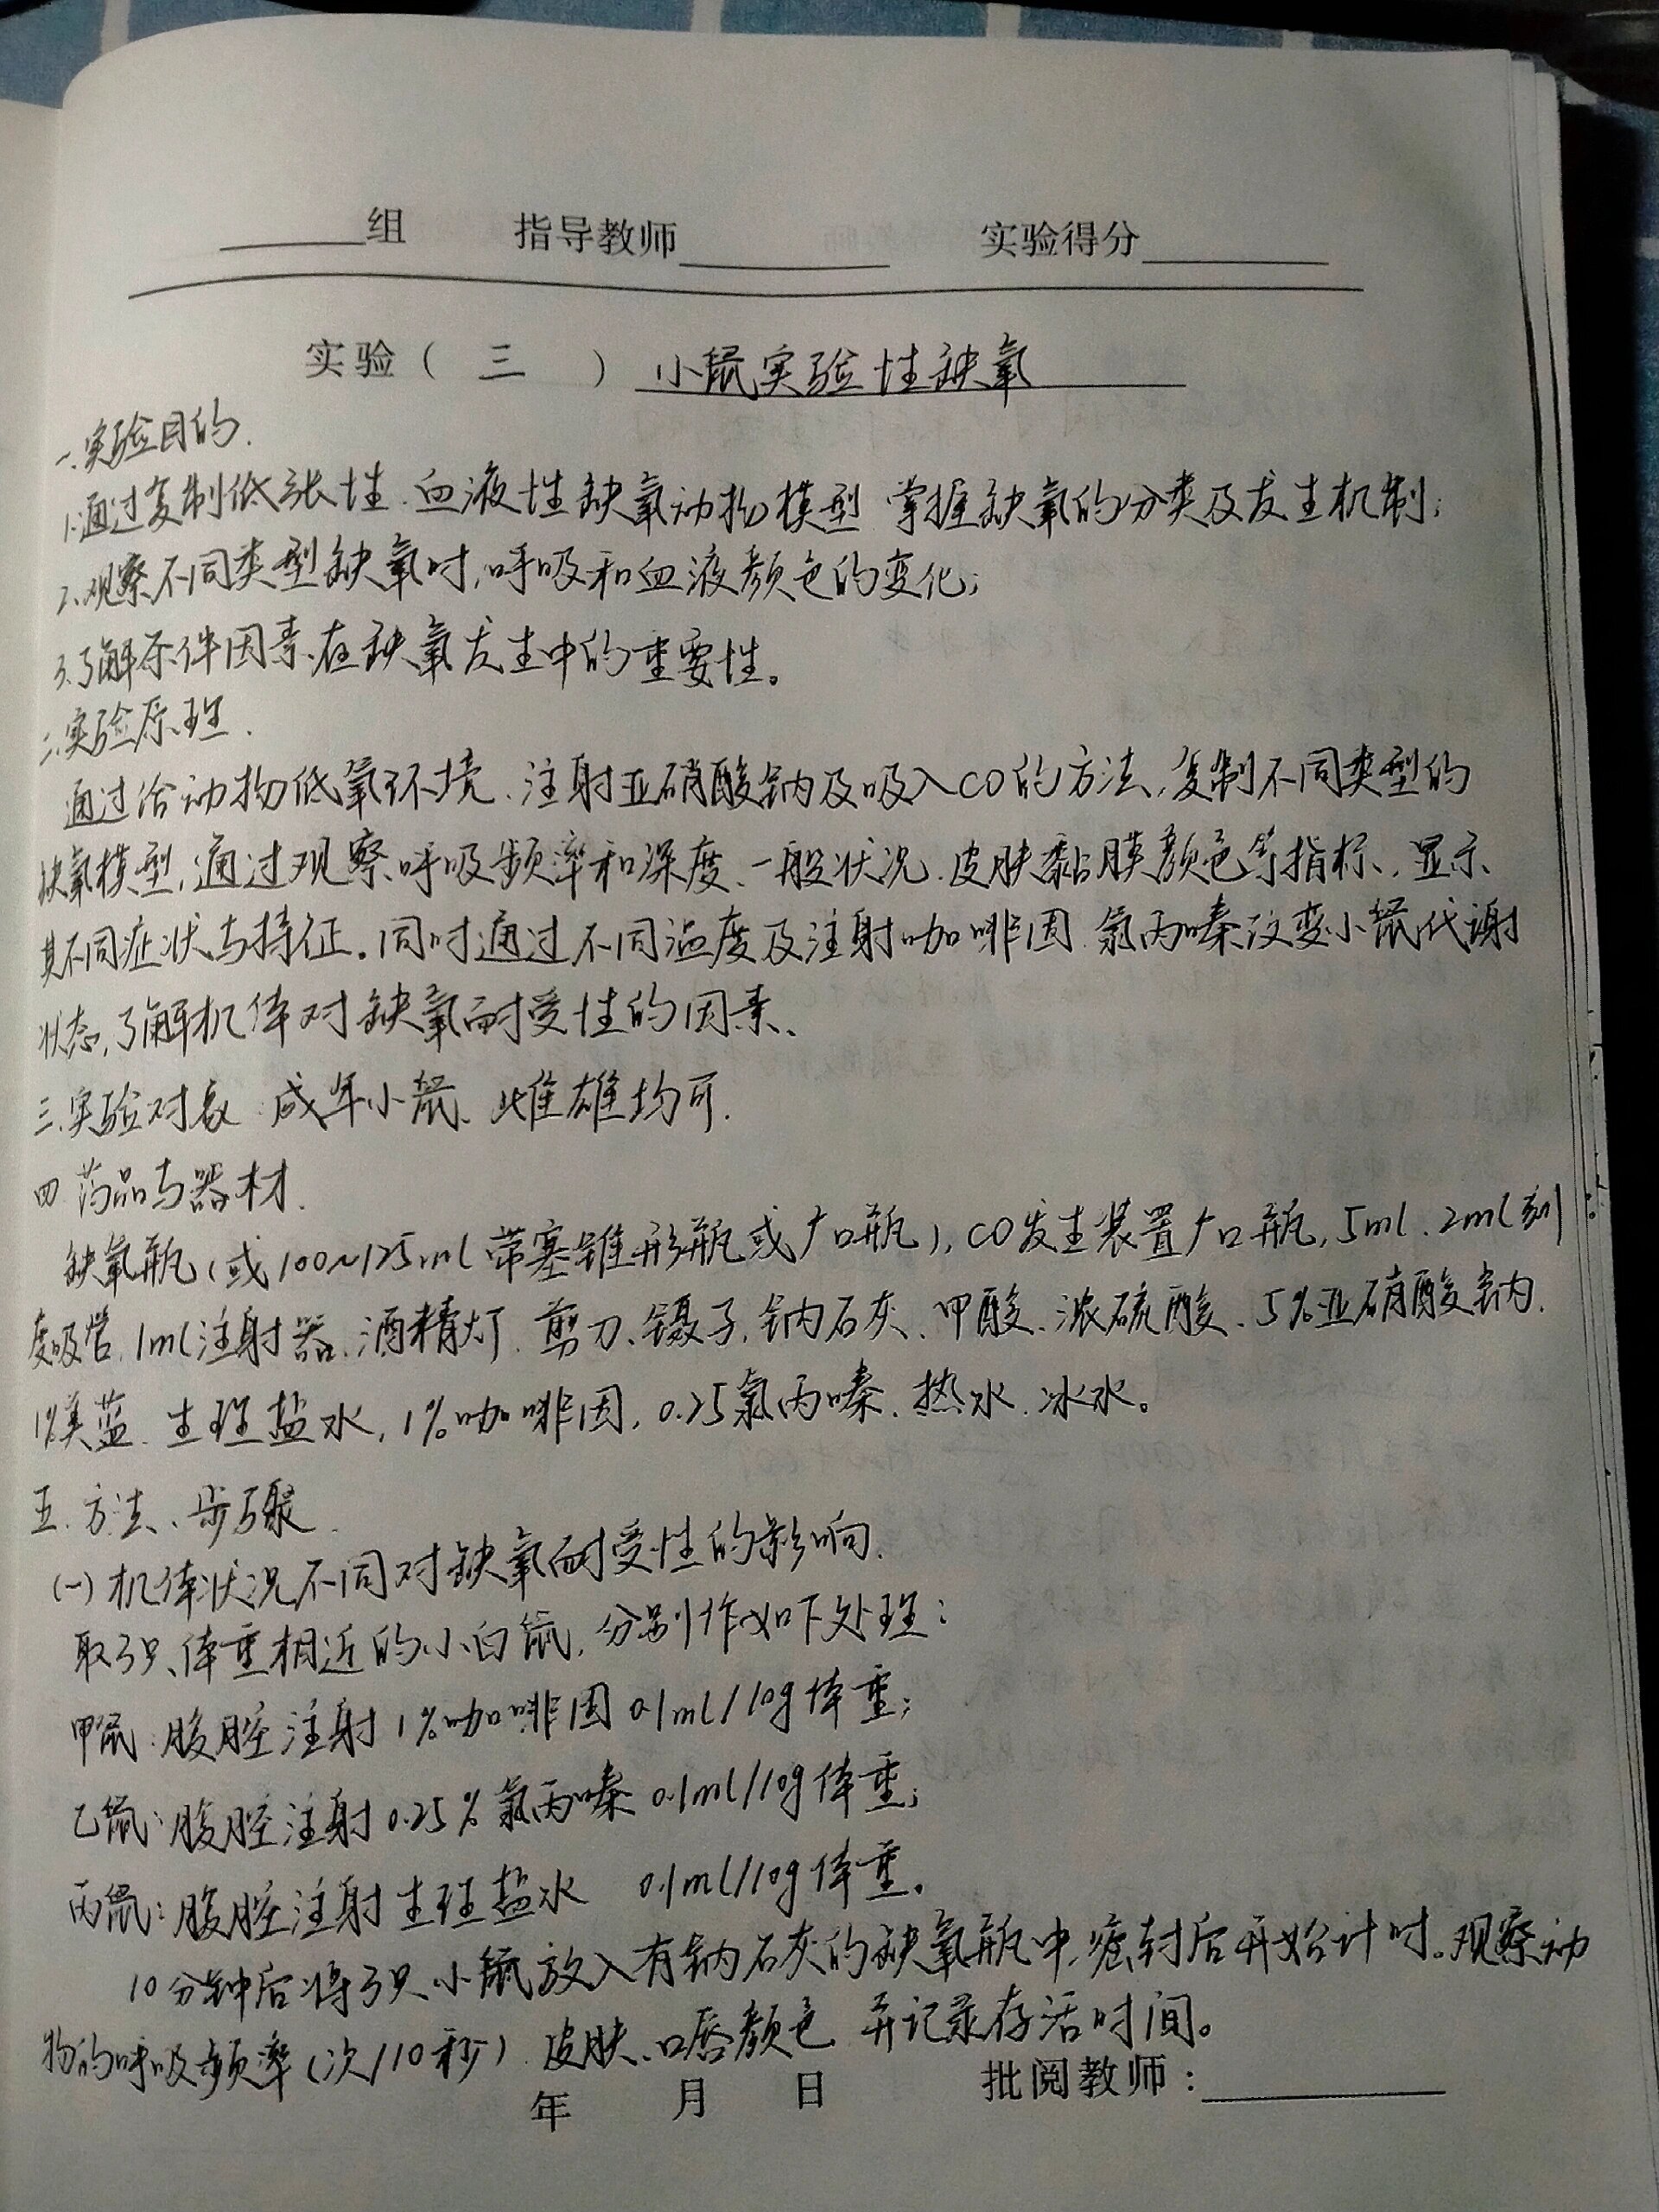 组 指导教师 实验得分
实验（ 三 ） 小鼠实验性缺氧
一.实验目的.
1.通过复制低张性.血液性缺氧动物模型 掌握缺氧的分类及发生机制;
2.观察不同类型缺氧时,呼吸和血液颜色的变化;
3.了解条件因素在缺氧发生中的重要性。
二.实验原理.
通过给动物低氧环境、注射亚硝酸钠及吸入CO的方法,复制不同类型的
缺氧模型,通过观察呼吸频率和深度、一般状况.皮肤黏膜颜色等指标、显示
其不同症状与特征.同时通过不同温度及注射咖啡因.氯丙嗪改变小鼠代谢
状态,了解机体对缺氧耐受性的因素、
三.实验对象:成年小鼠、雌雄均可.
四.药品与器材.
缺氧瓶(或100~125ml带塞锥形瓶或广口瓶),CO发生装置广口瓶,5ml.2ml刻
度吸管,1ml注射器.酒精灯.剪刀、镊子,钠石灰、甲酸、浓硫酸、5%亚硝酸钠.
1%美蓝.生理盐水,1%咖啡因,0.25氯丙嗪.热水.冰水。
五.方法、步骤.
(一)机体状况不同对缺氧耐受性的影响.
取3只体重相近的小白鼠,分别作如下处理:
甲鼠:腹腔注射1%咖啡因0.1ml/10g体重;
乙鼠:腹腔注射0.25%氯丙嗪0.1ml/10g体重;
丙鼠:腹腔注射生理盐水 0.1ml/10g体重。
10分钟后将3只小鼠放入有钠石灰的缺氧瓶中,密封后开始计时。观察动
物的呼吸频率(次/10秒).皮肤、口唇颜色 并记录存活时间。
年 月 日 批阅教师：